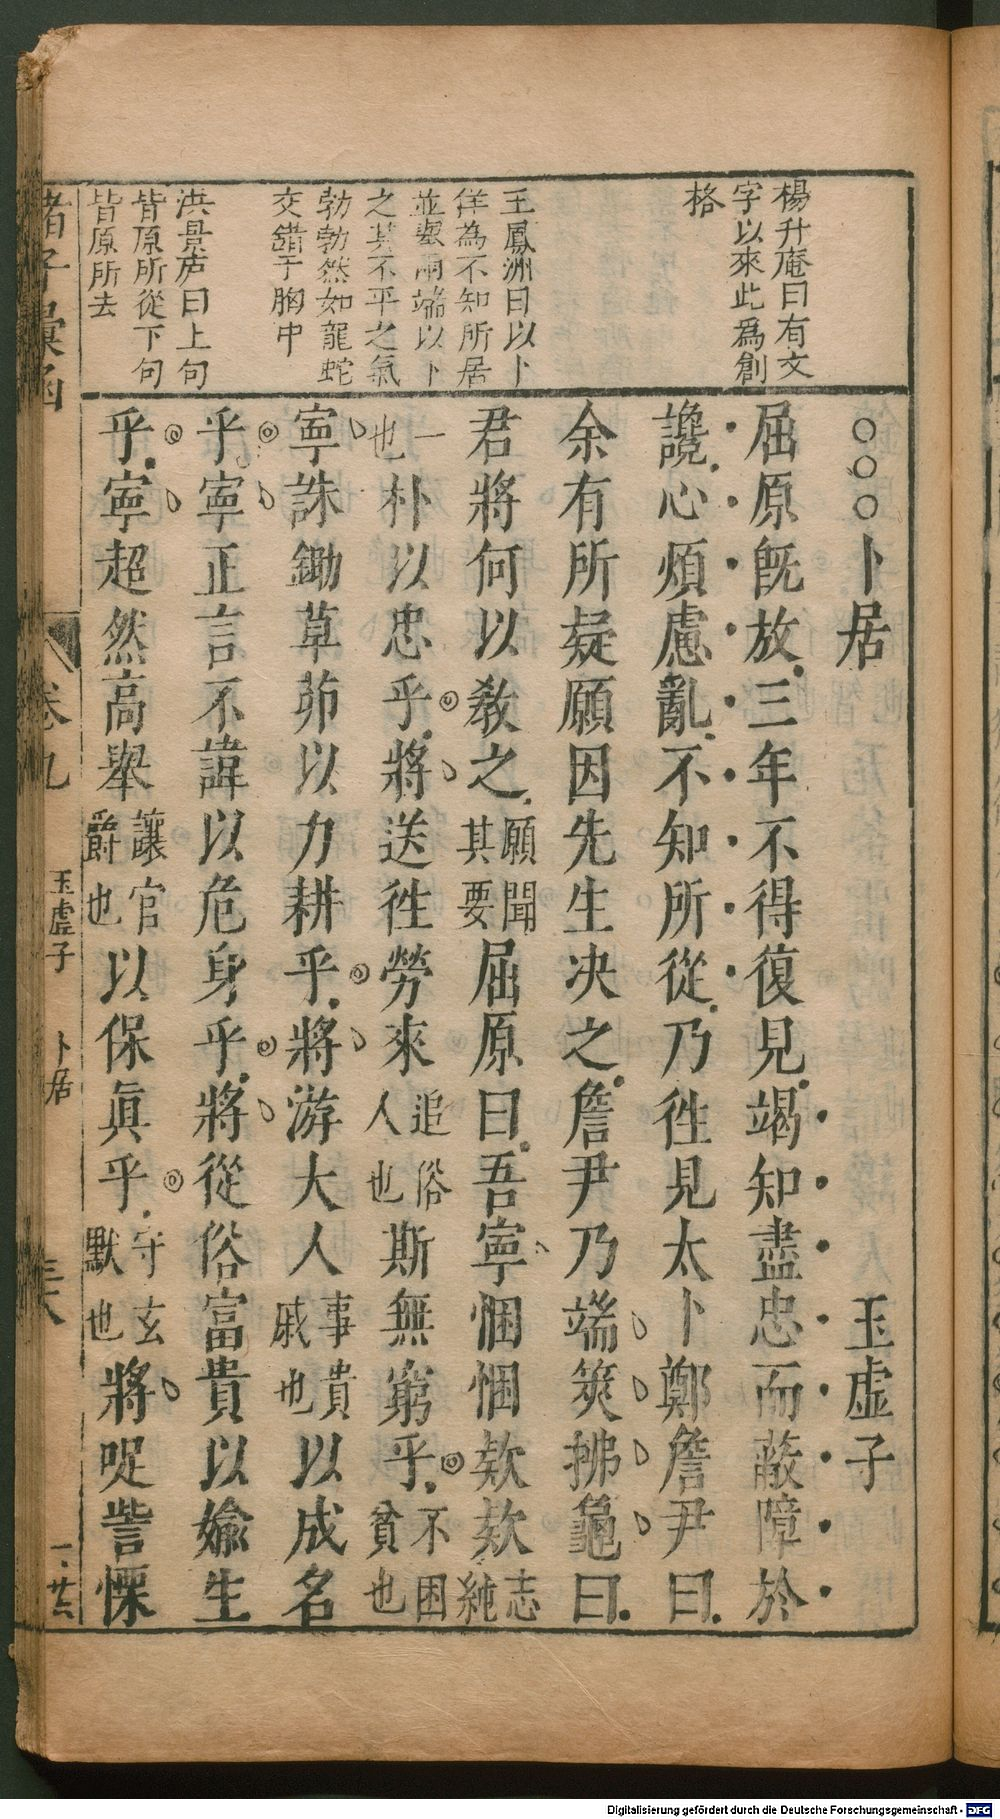 楊升庵曰有文
字以來此爲創
格
王鳳洲曰以卜
佯為不知所居
並舉兩端以卜
之其不平之氣
勃勃然如龍蛇
交錯于胸中
洪景庐曰上句
皆原所從下句
皆原所去
○○○卜居 玉虛子
屈原旣放三年不得復見竭知盡忠而蔽障於
讒心煩慮亂不知所從乃徃見太卜鄭詹尹曰
余有所疑願因先生决之詹尹乃端筴拂龜曰
君將何以敎之願聞其要屈原曰吾寧悃悃欵欵志純
一也朴以忠乎將送徃勞來追俗人也斯無窮乎不困貧也
寧誅鋤草茆以力耕乎將游大人事貴戚也以成名
乎寧正言不諱以危身乎將從俗富貴以婾生
乎寧超然高舉讓官爵也以保眞乎守玄默也將哫訾慄
諸子彙函
卷九
玉虛子 卜居
一廿六
Digitalisierung gefördert durch die Deutsche Forschungsgemeinschaft - DFG